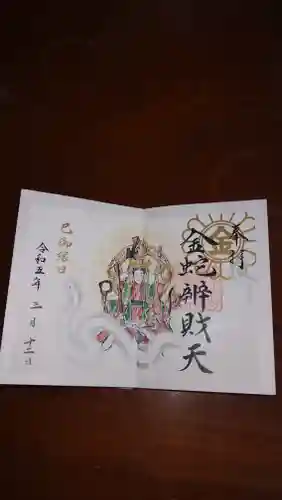 奉拝
金
金蛇辨財天
巳御縁日
令和五年 三月 十二日